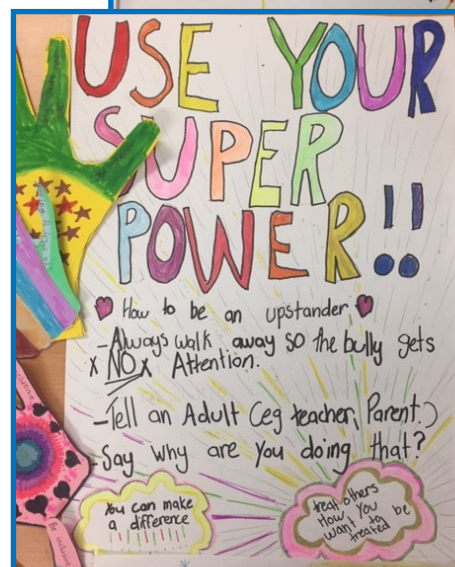 USE YOUR
SUPER
POWER!!
How to be an upstander
-Always walk away so the bully gets
x NO x Attention.
-Tell an Adult (eg teacher, Parent.)
-Say Why are you doing that?
You can make
a difference
treat others
How You
want to be
treated
Be inclusive